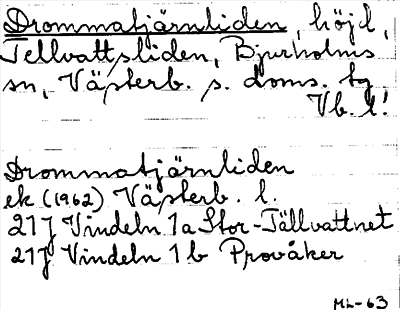 Drommatjärnliden, höjd,
Tellvattsliden, Bjurholms
sn, Västerb. s. doms. tg
Vb. l!
Drommatjärnliden
ek (1962) Västerb. l.
21J Vindeln 1a Stor-Tällvattnet
21J Vindeln 1b Provåker
ML-63